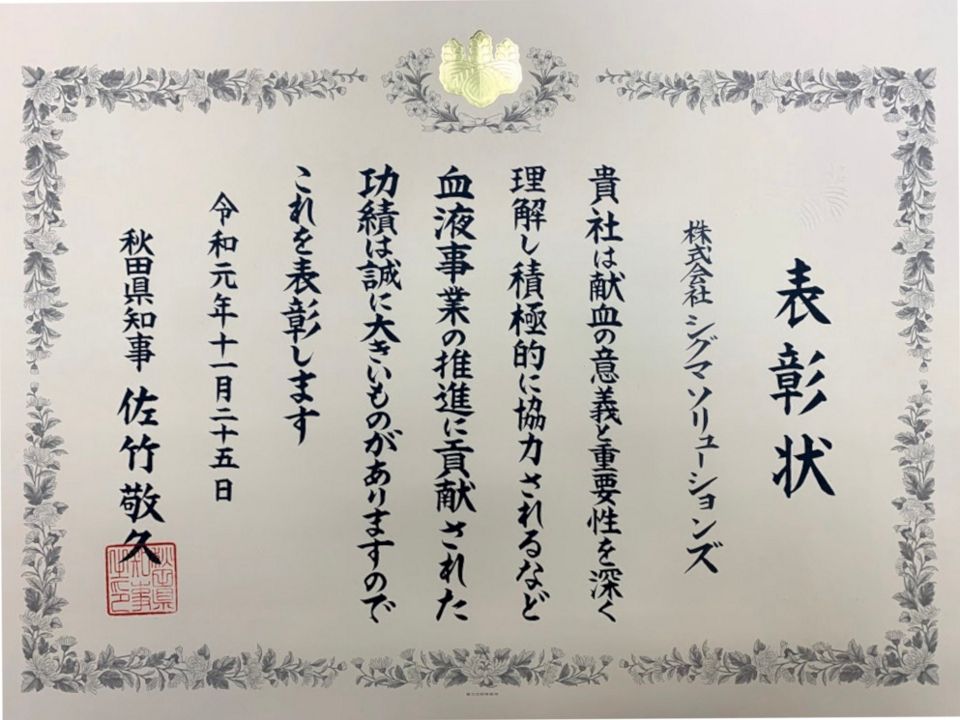 表彰状
株式会社 シグマソリューションズ
貴社は献血の意義と重要性を深く
理解し積極的に協力されるなど
血液事業の推進に貢献された
功績は誠に大きいものがありますので
これを表彰します
令和元年十一月二十五日
秋田県知事 佐竹敬久